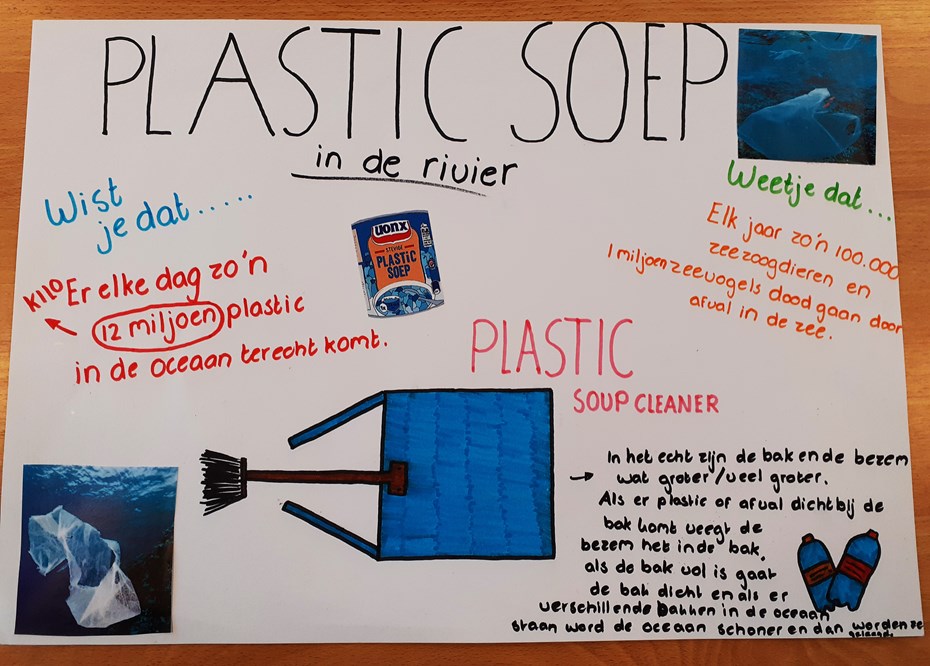 PLASTIC SOEP
in de rivier
Wist
je dat.....
Weetje dat...
Elk jaar zo'n 100.000
zeezoogdieren en
1 miljoen zeevogels dood gaan door
afval in de zee.
KILO Er elke dag zo'n
12 miljoen plastic
in de oceaan terecht komt.
UONX
STEVIGE
PLASTIC
SOEP
PLASTIC
SOUP CLEANER
In het echt zijn de bak en de bezem
wat groter/veel groter.
Als er plastic of afval dichtbij de
bak komt veegt de
bezem het in de bak.
als de bak vol is gaat
de bak dicht en als er
verschillende bakken in de oceaan
staan word de oceaan schoner en dan worden ze
geleegd.